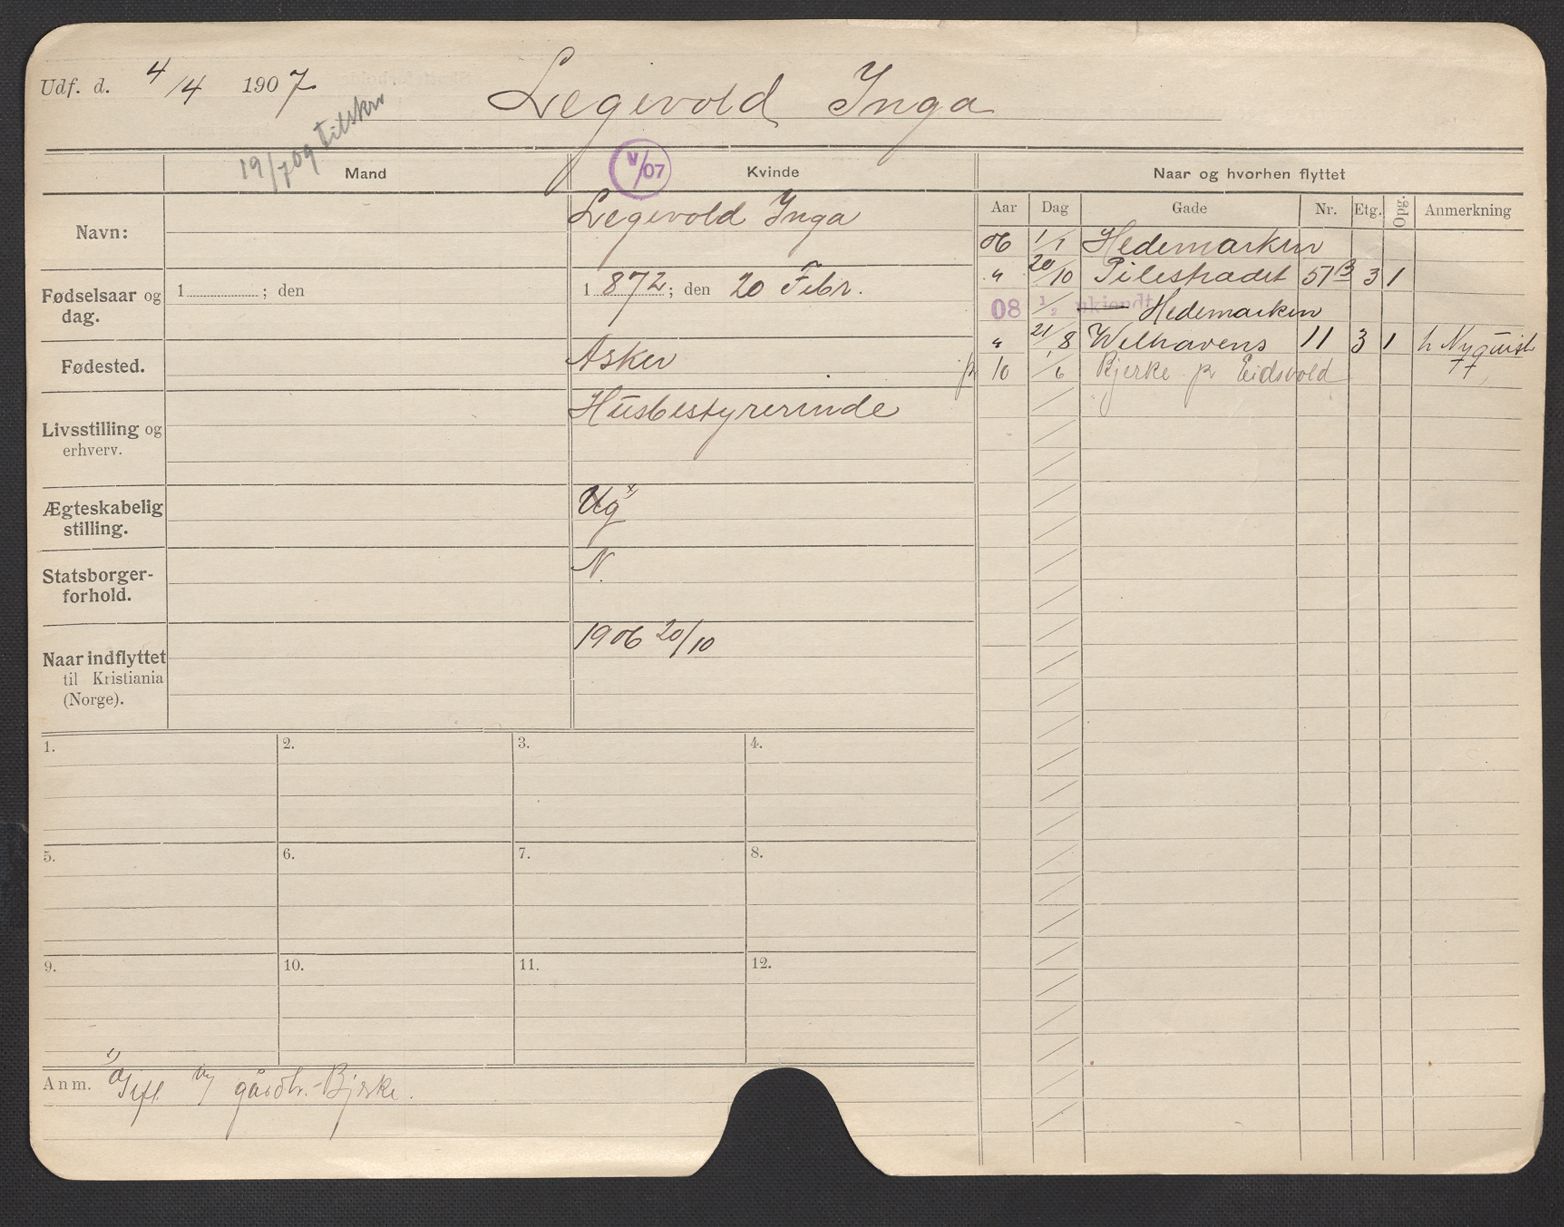 Udf. d. 4/4 1907
Legevold Inga
19/7 09 tilskr
V/07
Mand
Kvinde
Naar og hvorhen flyttet
Aar Dag Gade Nr. Etg. Opg. Anmerkning
Navn:
Legevold Inga
Fødselsaar og dag.
1 ; den
1 872 ; den 20 Febr.
Fødested.
Asker
Livsstilling og erhverv.
Husbestyrerinde
Ægteskabelig stilling.
Ug x)
Statsborger-forhold.
N.
Naar indflyttet til Kristiania (Norge).
1906 20/10
06 1/1 Hedemarken
" 20/10 Pilestrædet 57 B 3 1
08 1/2 ukjendt Hedemarken
" 21/8 Welhavens 11 3 1 h Nyquist
fr 10 1/6 Bjerke pr Eidsvold
1.
2.
3.
4.
5.
6.
7.
8.
9.
10.
11.
12.
Anm. Gift m/ gårdbr. Bjerke.